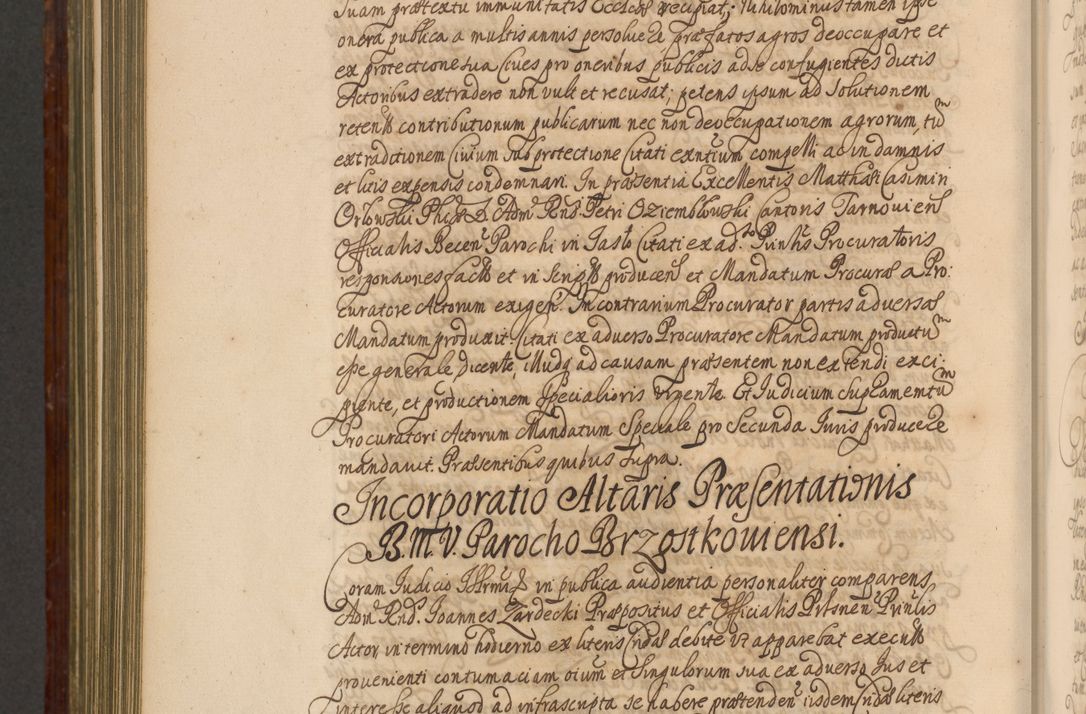 Suam prætextu immunitatis Eccleæ recipiat; Nihilominus tamen ipse
onera publica a multis annis persoluere præfatos agros deoccupare et
ex protectione sua Cives pro oneribus publicis ad se confugientes dictis
Actoribus extradere non vult et recusat; petens ipsum ad Solutionem
retent contributionum publicarum nec non deoccupationem agrorum, tum
extraditionem Civium sub protectione Citati exntium compelli ac in damnis
et litis expensis condemnari. In præsentia Excellentis Matthæi Casimiri
Orlowski Ph: D. Adm Rnd Petri Oziemblowski Cantoris Tarnovien
Officialis Becen Parochi in Jaslo Citati ex adto Prinlis Procuratoris
responsiones facto et in Script producen et Mandatum Procurae a Pro:
curatore Actorum exigen. In contrarium Procurator partis adversae
Mandatum produxit. Citati ex adverso Procuratore Mandatum productum
esse generale, dicente, illudq ad causam præsentem non extendi exci:
piente, et productionem Specialioris urgente. Et Judicium
Procuratori Actorum Mandatum Speciale pro Secunda Juris producere
mandavit. Præsentibus quibus supra.
Incorporatio Altaris Præsentationis
B.M.V. Parocho Brzostkoviensi.
Coram Judicio in publica audientia personaliter comparens,
Adm Rnd. Joannes Zardecki Præpositus et Officialis Pilsnen Prinlis
Actor, in termino hodierno ex literis debite ut apparebat execut
provenienti contumaciam oium et Singulorum sua ex adverso Jus et
interesse aliquod ad infrascripta se habere prætenden iisdem literis